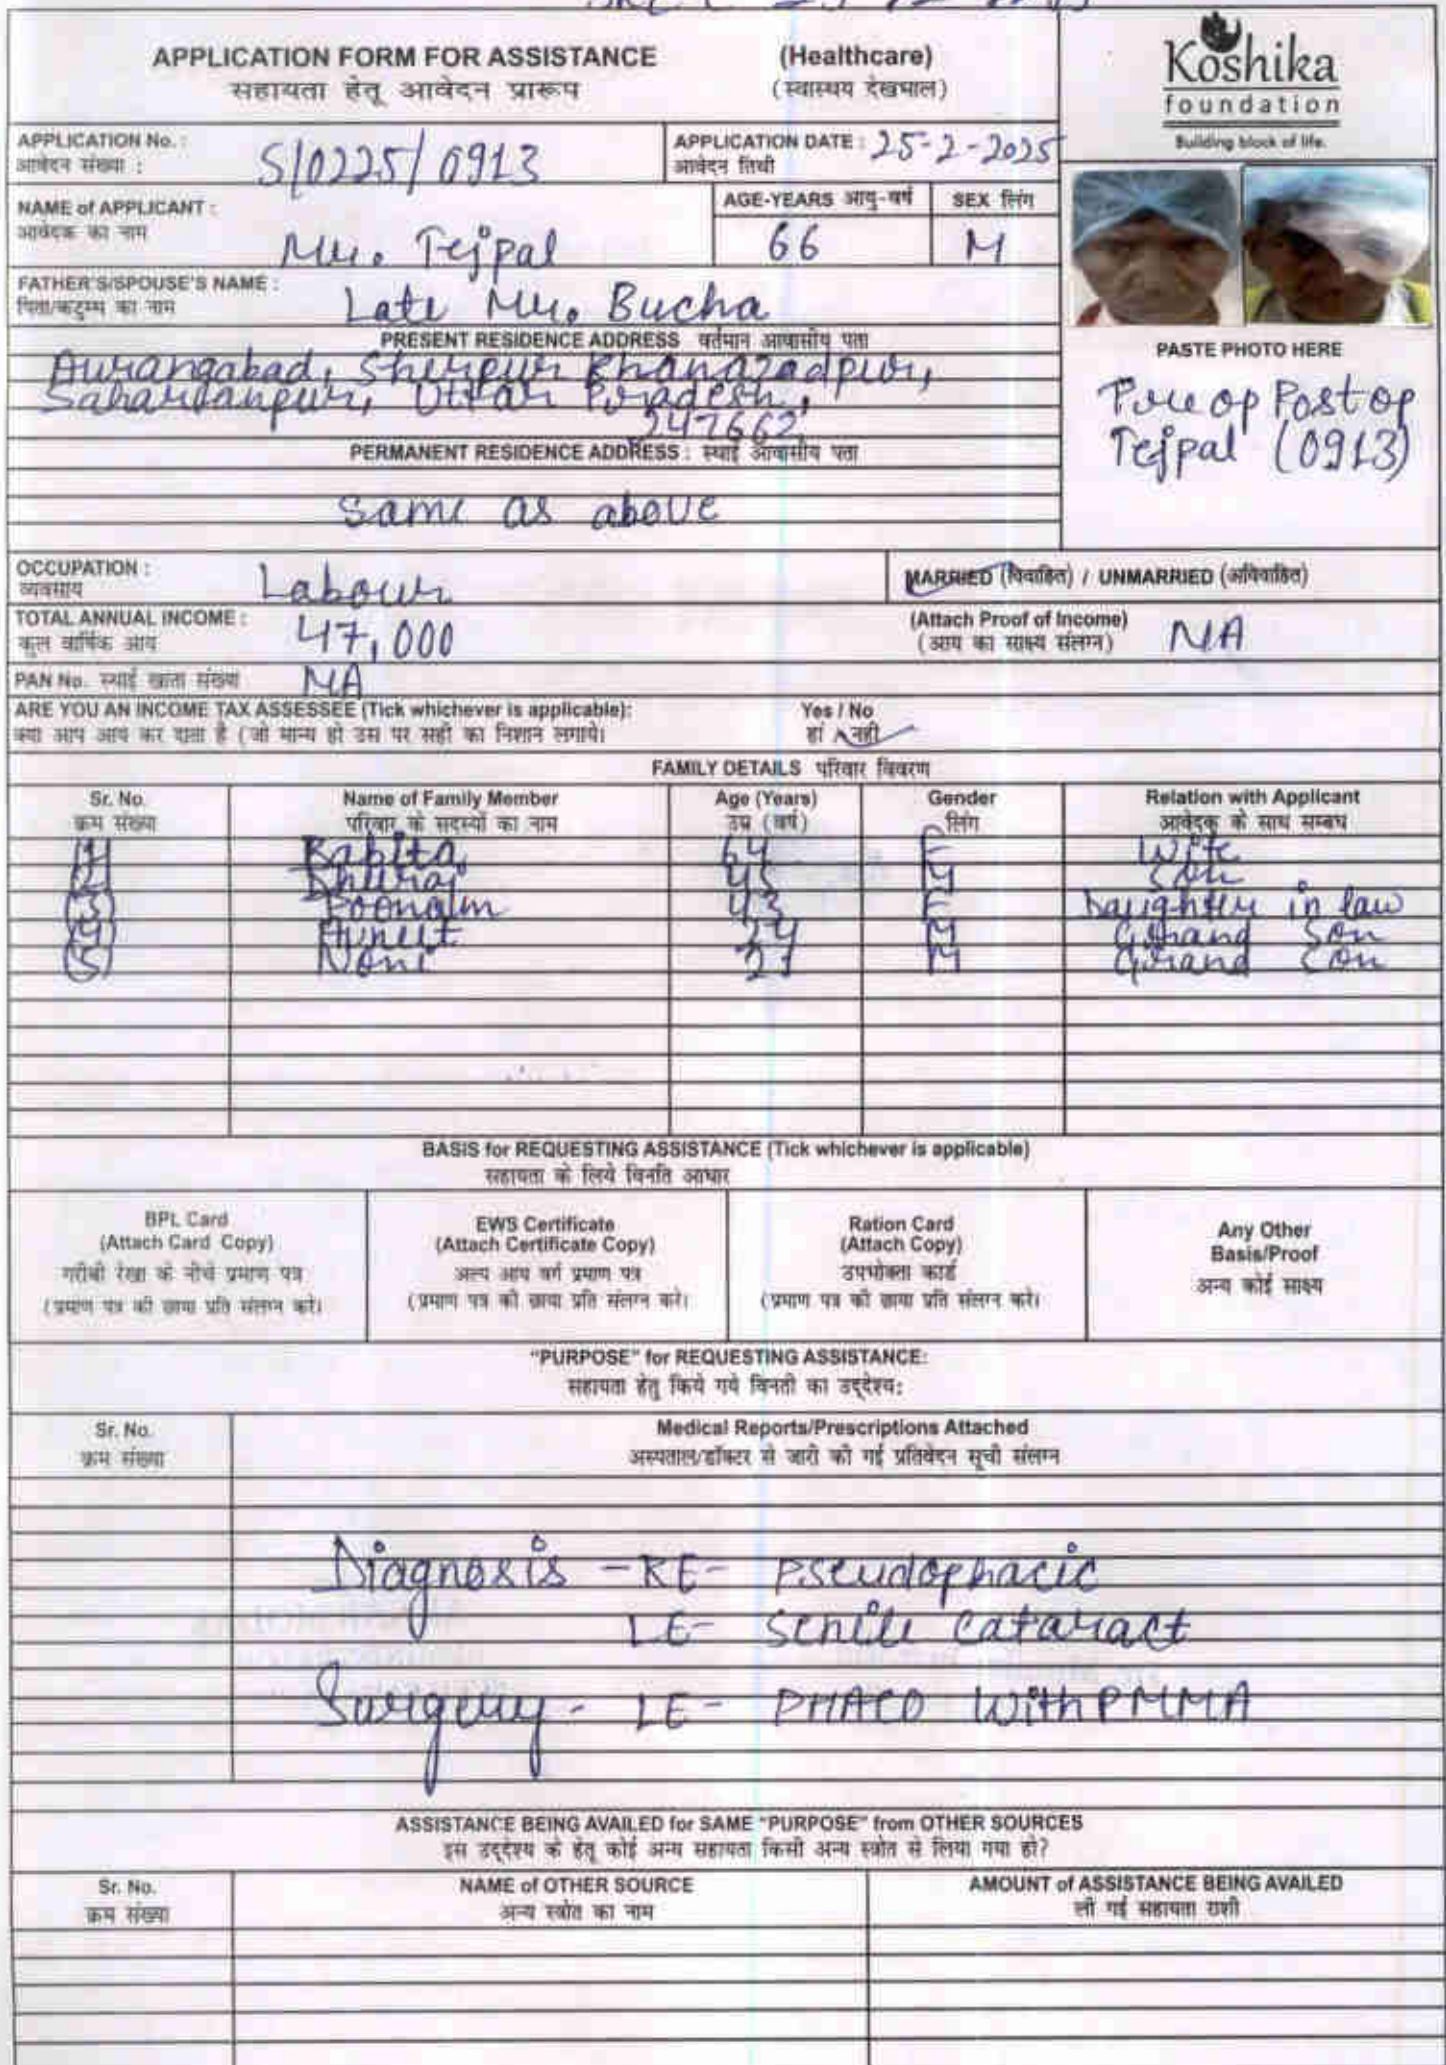 APPLICATION FORM FOR ASSISTANCE (Healthcare)
सहायता हेतू आवेदन प्रारूप (स्वास्थय देखभाल)
Koshika
foundation
Building block of life.
APPLICATION No. : S/0225/0913
आवेदन संख्या :
APPLICATION DATE : 25-2-2025
आवेदन तिथी
NAME of APPLICANT : Mr. Tejpal
आवेदक का नाम
AGE-YEARS आयु-वर्ष 66
SEX लिंग M
FATHER'S/SPOUSE'S NAME : Late Mr. Bucha
पिता/कटुम्ब का नाम
PRESENT RESIDENCE ADDRESS वर्तमान आवासीय पता
Aurangabad, Sherpur Khanazadpur,
Saharanpur, Uttar Pradesh,
247662
PERMANENT RESIDENCE ADDRESS : स्थाई आवासीय पता
Same as above
PASTE PHOTO HERE
Pre op Post op
Tejpal (0913)
OCCUPATION : Labour
व्यवसाय
MARRIED (विवाहित) / UNMARRIED (अविवाहित)
TOTAL ANNUAL INCOME : 47,000
कुल वार्षिक आय
(Attach Proof of Income) NA
(आय का साक्ष्य संलग्न)
PAN No. स्थाई खाता संख्या NA
ARE YOU AN INCOME TAX ASSESSEE (Tick whichever is applicable): Yes / No
क्या आप आय कर दाता है (जो मान्य हो उस पर सही का निशान लगाये। हां / नही
FAMILY DETAILS परिवार विवरण
Sr. No. Name of Family Member Age (Years) Gender Relation with Applicant
क्रम संख्या परिवार के सदस्यों का नाम उम्र (वर्ष) लिंग आवेदक के साथ सम्बध
(1) Babita 64 F Wife
(2) Dhiraj 45 M Son
(3) Poonam 43 F Daughter in law
(4) 24 M Grand Son
(5) Noni 21 M Grand Son
BASIS for REQUESTING ASSISTANCE (Tick whichever is applicable)
सहायता के लिये विनति आधार
BPL Card
(Attach Card Copy)
गरीबी रेखा के नीचे प्रमाण पत्र
(प्रमाण पत्र की छाया प्रति संलग्न करे।
EWS Certificate
(Attach Certificate Copy)
अल्प आय वर्ग प्रमाण पत्र
(प्रमाण पत्र की छाया प्रति संलग्न करे।
Ration Card
(Attach Copy)
उपभोक्ता कार्ड
(प्रमाण पत्र की छाया प्रति संलग्न करे।
Any Other
Basis/Proof
अन्य कोई साक्ष्य
"PURPOSE" for REQUESTING ASSISTANCE:
सहायता हेतु किये गये विनती का उद्देश्य:
Sr. No. Medical Reports/Prescriptions Attached
क्रम संख्या अस्पताल/डॉक्टर से जारी की गई प्रतिवेदन सूची संलग्न
Diagnosis - RE- Pseudophacic
LE- Senile cataract
Surgery - LE - PHACO with PMMA
ASSISTANCE BEING AVAILED for SAME "PURPOSE" from OTHER SOURCES
इस उद्देश्य के हेतू कोई अन्य सहायता किसी अन्य स्त्रोत से लिया गया हो?
Sr. No. NAME of OTHER SOURCE AMOUNT of ASSISTANCE BEING AVAILED
क्रम संख्या अन्य स्त्रोत का नाम ली गई सहायता राशी